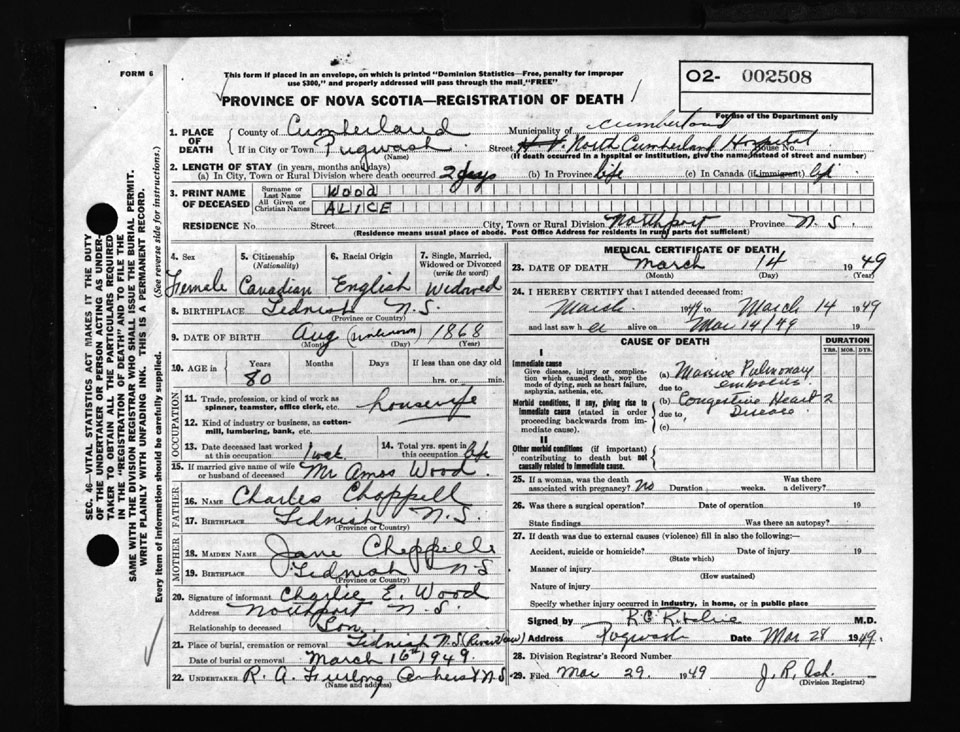 FORM 6
This form if placed in an envelope, on which is printed "Dominion Statistics—Free, penalty for improper
use $300," and properly addressed will pass through the mail "FREE"
PROVINCE OF NOVA SCOTIA—REGISTRATION OF DEATH
O2- 002508
For use of the Department only
1. PLACE OF DEATH
County of Cumberland Municipality of Cumberland
If in City or Town Pugwash Street North Cumberland Hospital House No.
(Name) (If death occurred in a hospital or institution, give the name instead of street and number)
2. LENGTH OF STAY (in years, months and days)
(a) In City, Town or Rural Division where death occurred 2 days (b) In Province life (c) In Canada (if immigrant) life
3. PRINT NAME OF DECEASED
Surname or Last Name WOOD
All Given or Christian Names ALICE
RESIDENCE No. Street City, Town or Rural Division Northport Province N.S.
(Residence means usual place of abode. Post Office Address for residents in rural parts not sufficient)
4. Sex 5. Citizenship (Nationality) 6. Racial Origin 7. Single, Married, Widowed or Divorced (write the word)
Female Canadian English Widowed
8. BIRTHPLACE Tidnish N.S.
(Province or Country)
9. DATE OF BIRTH Aug (unknown) 1868
(Month) (Day) (Year)
10. AGE in Years Months Days If less than one day old
80 hrs. or min.
OCCUPATION
11. Trade, profession, or kind of work as
spinner, teamster, office clerk, etc. housewife
12. Kind of industry or business, as cotton-
mill, lumbering, bank, etc.
13. Date deceased last worked at this occupation 1 week 14. Total yrs. spent in this occupation life
15. If married give name of wife or husband of deceased Mr Amos Wood
FATHER
16. NAME Charles Chappell
17. BIRTHPLACE Tidnish N.S.
(Province or Country)
MOTHER
18. MAIDEN NAME Jane Chappelle
19. BIRTHPLACE Tidnish N S
(Province or Country)
20. Signature of informant Charlie E. Wood
Address Northport N.S.
Relationship to deceased Son
21. Place of burial, cremation or removal Tidnish N.S (River View)
Date of burial or removal March 16th 1949
22. UNDERTAKER R. A. Furlong Amherst N S
(Name and address)
MEDICAL CERTIFICATE OF DEATH
23. DATE OF DEATH March 14 1949
(Month) (Day) (Year)
24. I HEREBY CERTIFY that I attended deceased from:
March 1949 to March 14 1949
and last saw her alive on Mar 14/49 19
CAUSE OF DEATH DURATION
YRS. MOS. DYS.
I
Immediate cause
Give disease, injury or complication which caused death, not the mode of dying, such as heart failure, asphyxia, asthenia, etc.
(a) Massive Pulmonary embolus
due to
Morbid conditions, if any, giving rise to immediate cause (stated in order proceeding backwards from immediate cause).
(b) Congestive Heart Disease 2
due to
(c)
II
Other morbid conditions (if important) contributing to death but not causally related to immediate cause.
25. If a woman, was the death associated with pregnancy? No Duration weeks. Was there a delivery?
26. Was there a surgical operation? Date of operation 19
State findings Was there an autopsy?
27. If death was due to external causes (violence) fill in also the following:—
Accident, suicide or homicide? Date of injury 19
(State which)
Manner of injury
(How sustained)
Nature of injury
Specify whether injury occurred in industry, in home, or in public place
Signed by M.D.
Address Pugwash Date Mar 28 1949
28. Division Registrar's Record Number
29. Filed Mar 29. 1949 J. R. Ash.
(Division Registrar)
SEC. 46—VITAL STATISTICS ACT MAKES IT THE DUTY
OF THE UNDERTAKER OR PERSON ACTING AS UNDER-
TAKER TO OBTAIN ALL THE PARTICULARS REQUIRED
IN THE "REGISTRATION OF DEATH" AND TO FILE THE
SAME WITH THE DIVISION REGISTRAR WHO SHALL ISSUE THE BURIAL PERMIT.
WRITE PLAINLY WITH UNFADING INK. THIS IS A PERMANENT RECORD.
Every item of information should be carefully supplied. (See reverse side for instructions.)